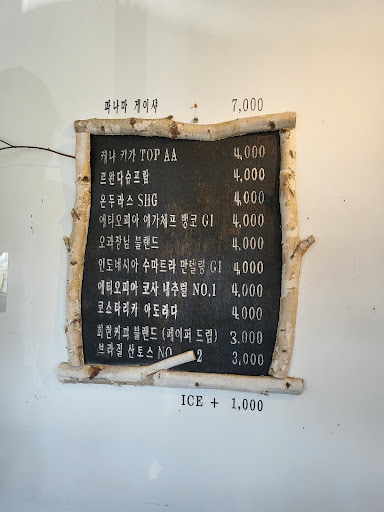 파나마 게이샤 7,000
케냐 키가 TOP AA 4,000
르완다슈프림 4,000
온두라스 SHG 4,000
에티오피아 예가체프 뱅코 G1 4,000
오과장님 블랜드 4,000
인도네시아 수마트라 만델링 G1 4,000
에티오피아 코사 내추럴 NO.1 4,000
코스타리카 아도라다 4,000
회현커피 블랜드 (페이퍼 드립) 3,000
브라질 산토스 NO 2 3,000
ICE + 1,000